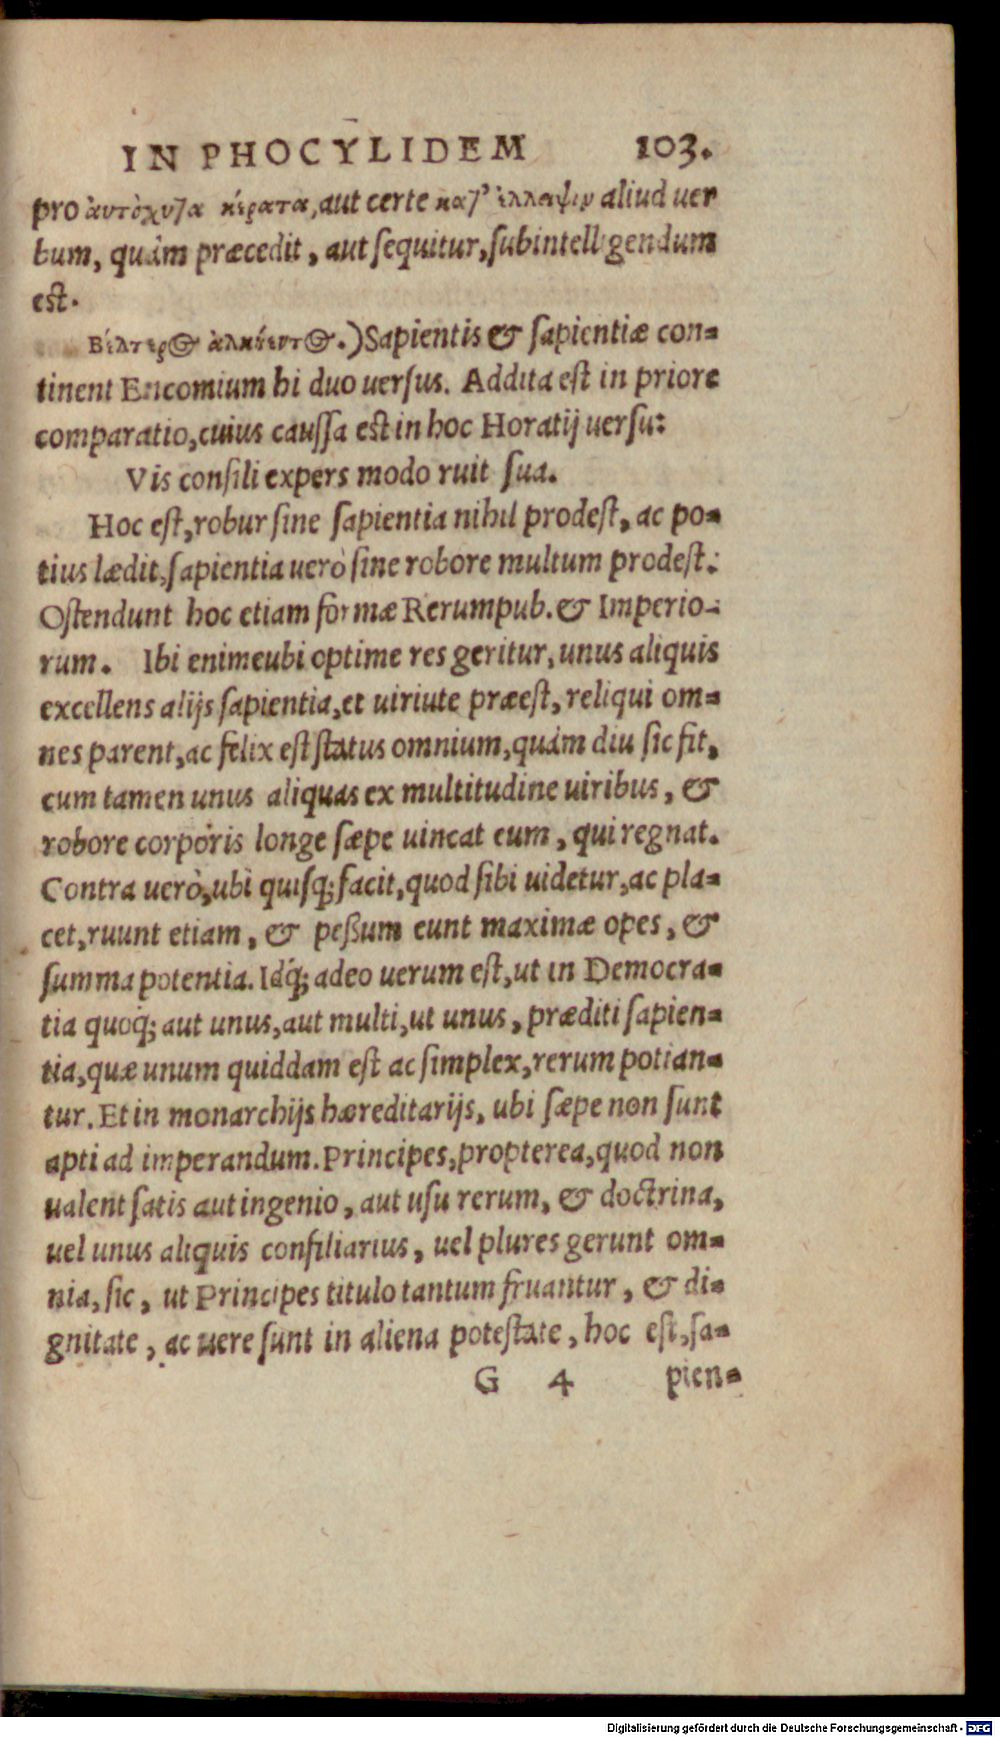 IN PHOCYLIDEM 103.
pro αὐτόχυτα κέρατα, aut certe κατ' ἔλλειψιν aliud uer
bum, quàm præcedit, aut sequitur, subintelligendum
est.
Βέλτερος ἀλκήεντος.) Sapientis & sapientiæ con-
tinent Encomium hi duo uersus. Addita est in priore
comparatio, cuius caussa est in hoc Horatij uersu:
Vis consili expers modo ruit sua.
Hoc est, robur sine sapientia nihil prodest, ac po-
tius lædit, sapientia uerò sine robore multum prodest:
Ostendunt hoc etiam formæ Rerumpub. & Imperio-
rum. Ibi enimeubi optime res geritur, unus aliquis
excellens alijs sapientia, et uiriute præest, reliqui om-
nes parent, ac felix est status omnium, quàm diu sic fit,
cum tamen unus aliquas ex multitudine uiribus, &
robore corporis longe sæpe uincat eum, qui regnat.
Contra uerò, ubi quisq; facit, quod sibi uidetur, ac pla-
cet, ruunt etiam, & peßum eunt maximæ opes, &
summa potentia. Idq́; adeo uerum est, ut in Democra-
tia quoq́; aut unus, aut multi, ut unus, præditi sapien-
tia, quæ unum quiddam est ac simplex, rerum potian-
tur. Et in monarchijs hæreditarijs, ubi sæpe non sunt
apti ad imperandum. Principes, propterea, quod non
ualent satis aut ingenio, aut usu rerum, & doctrina,
uel unus aliquis consiliarius, uel plures gerunt om-
nia, sic, ut Principes titulo tantum fruantur, & di-
gnitate, ac uere sunt in aliena potestate, hoc est, sa-
G 4 pien-
Digitalisierung gefördert durch die Deutsche Forschungsgemeinschaft - DFG